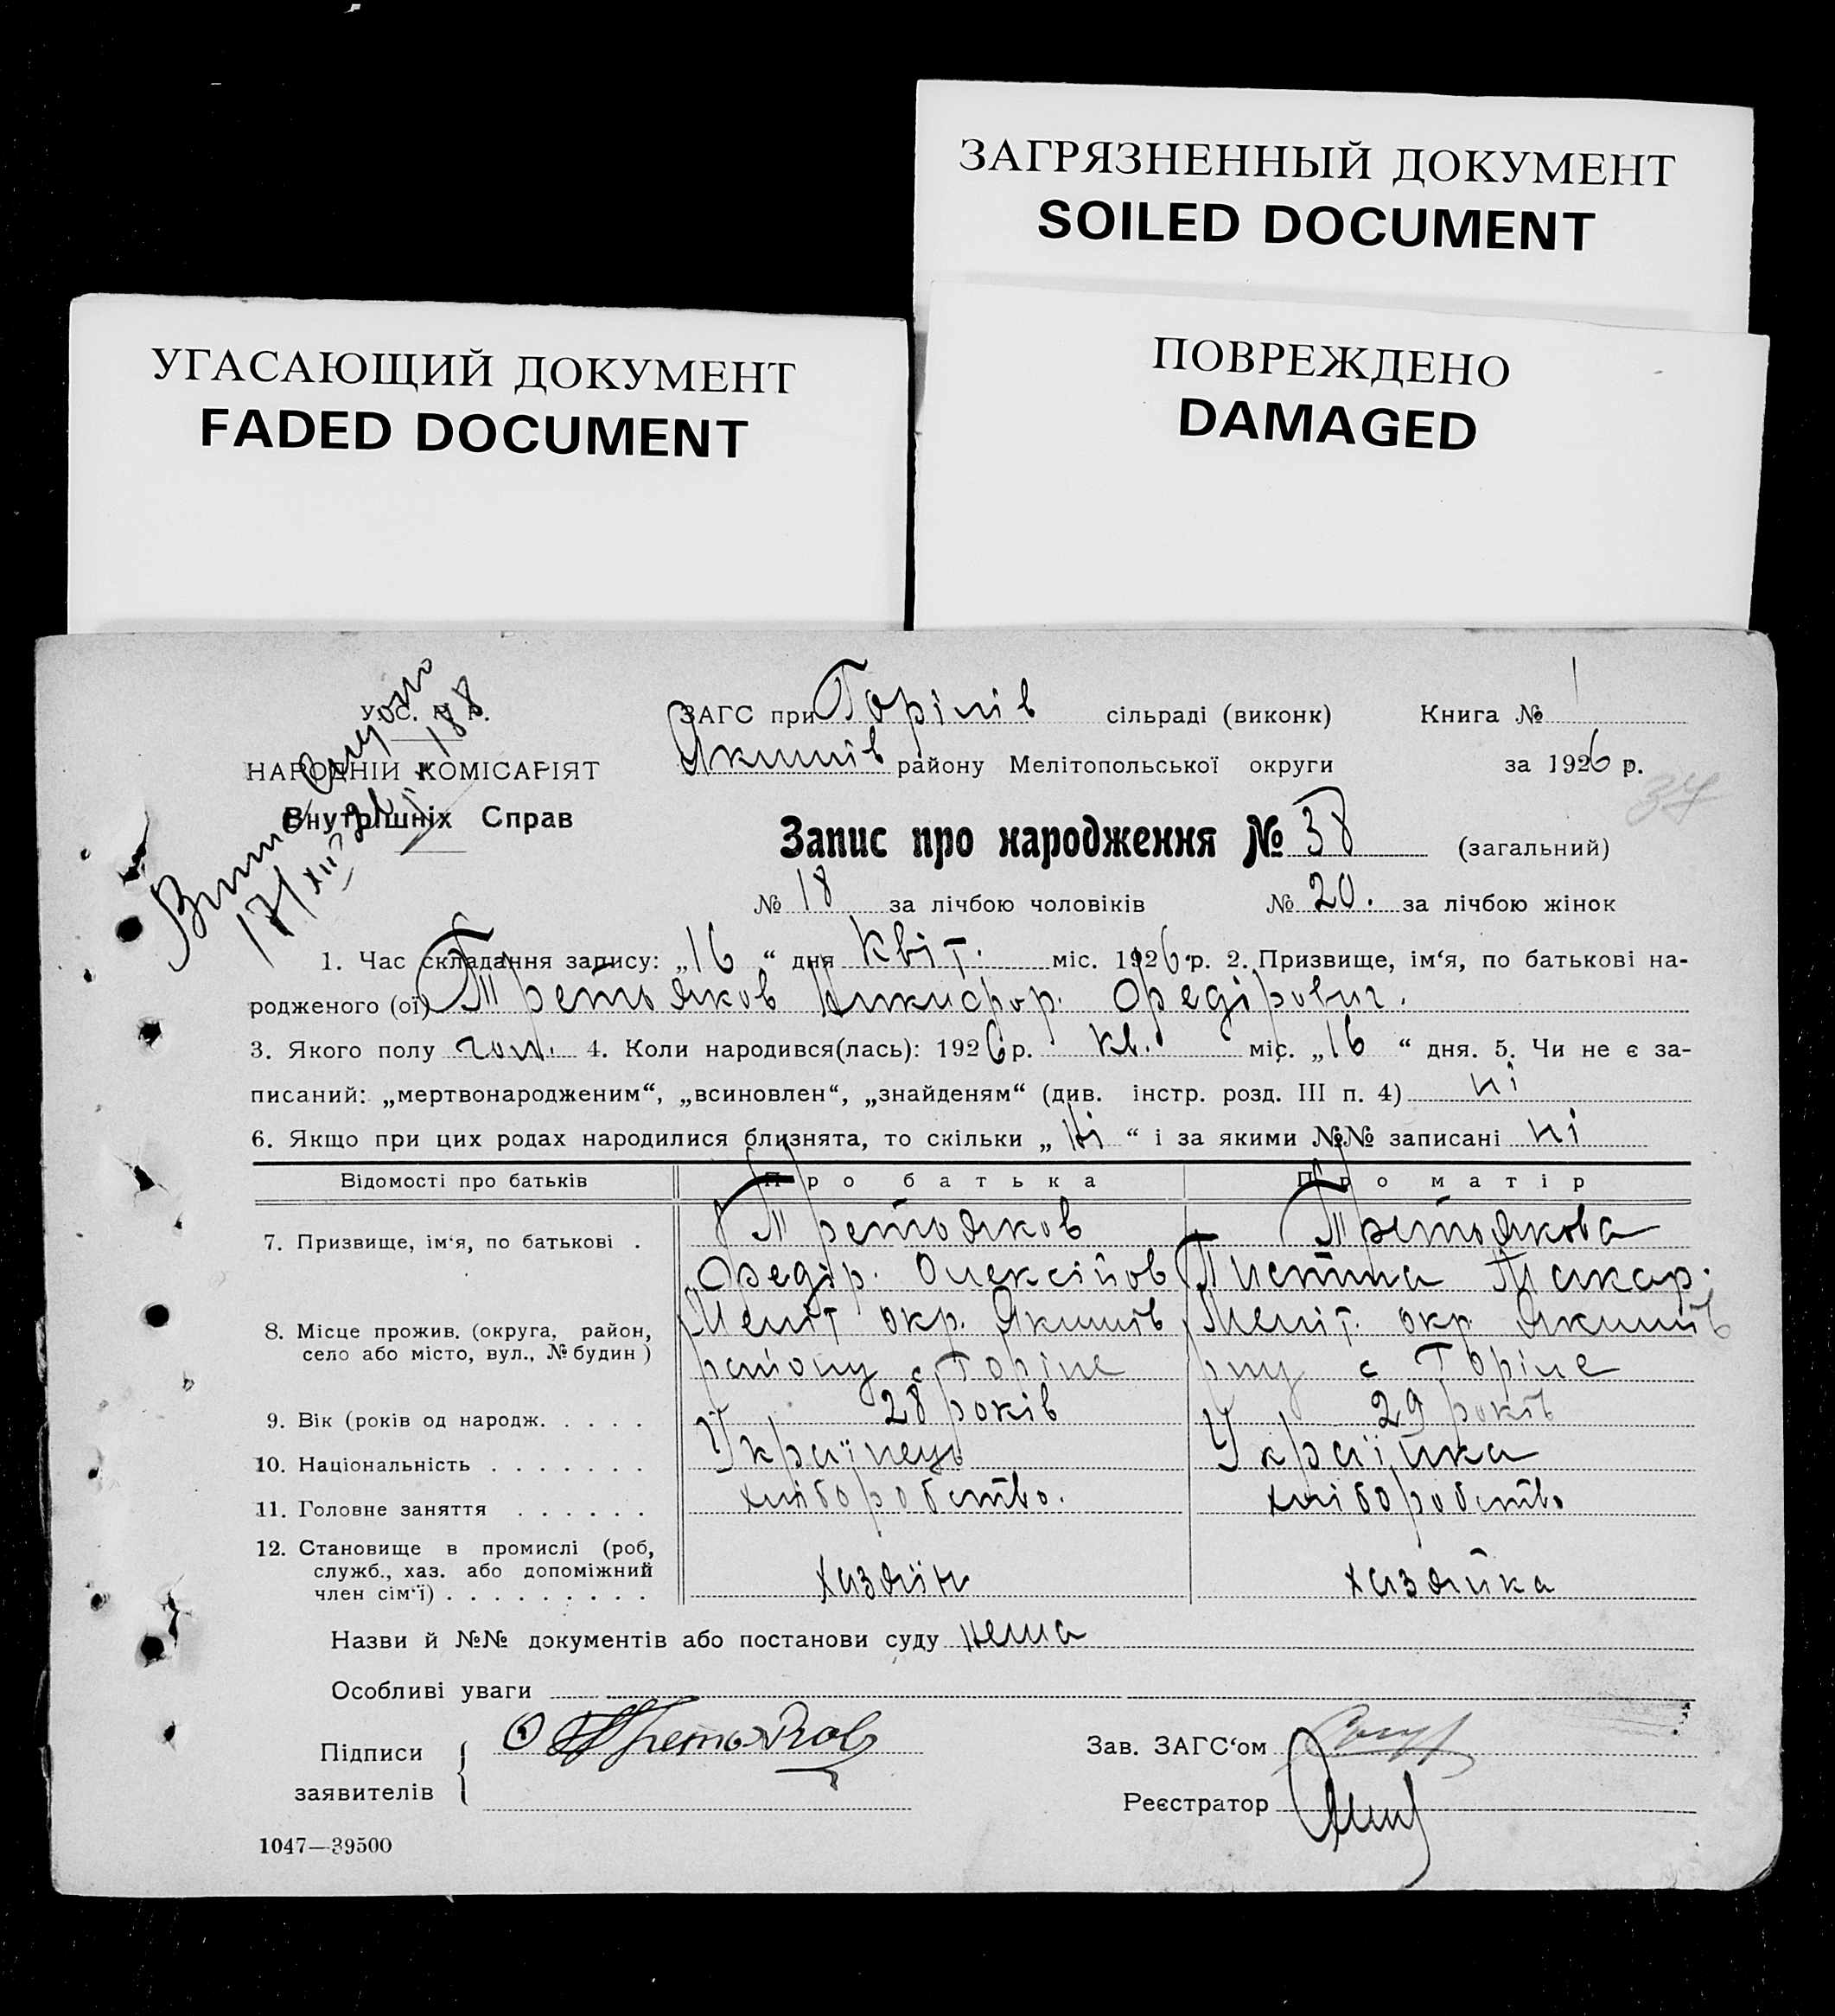 ЗАГРЯЗНЕННЫЙ ДОКУМЕНТ
SOILED DOCUMENT
УГАСАЮЩИЙ ДОКУМЕНТ
FADED DOCUMENT
ПОВРЕЖДЕНО
DAMAGED
У. С. Р. Р.
НАРОДНІЙ КОМІСАРІЯТ
Внутрішніх Справ
17/XII
188
ЗАГС при Горілів сільраді (виконк) Книга № 1
Якимів району Мелітопольської округи за 1926 р.
37
Запис про народження № 38 (загальний)
№ 18 за лічбою чоловіків № 20. за лічбою жінок
1. Час складання запису: „16“ дня Квіт. міс. 1926 р. 2. Призвище, ім‘я, по батькові на-
родженого (ої) Третьяков Никифор. Федірович.
3. Якого полу чол. 4. Коли народився(лась): 1926 р. кв. міс. „16“ дня. 5. Чи не є за-
писаний: „мертвонародженим“, „всиновлен“, „знайденям“ (див. інстр. розд. III п. 4) ні
6. Якщо при цих родах народилися близнята, то скільки „ні“ і за якими №№ записані ні
Відомості про батьків Про батька Про матір
7. Призвище, ім‘я, по батькові . Третьяков Третьякова
Федір. Олексійов Тистина Макар.
8. Місце прожив. (округа, район, Меліт окр. Якимів Меліт. окр Якимів
село або місто, вул., № будин) району с Горіле рну с Горіле
9. Вік (років од народж. . . . . 28 років 29 років
10. Національність . . . . . . . Українець Українка
11. Головне заняття . . . . . . хліборобство. хліборобство
12. Становище в промислі (роб,
служб., хаз. або допоміжний
член сім‘ї) . . . . . . . . . хазяїн хазяйка
Назви й №№ документів або постанови суду нема
Особливі уваги
Підписи Третьяков Зав. ЗАГС‘ом
заявителів Реєстратор
1047—39500